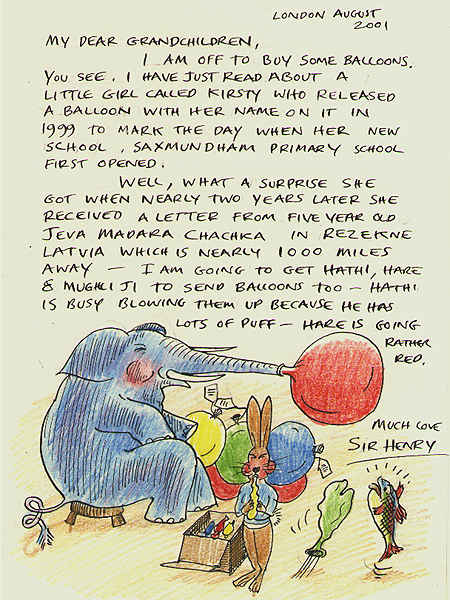 LONDON AUGUST
2001
MY DEAR GRANDCHILDREN,
I AM OFF TO BUY SOME BALLOONS.
YOU SEE. I HAVE JUST READ ABOUT A
LITTLE GIRL CALLED KIRSTY WHO RELEASED
A BALLOON WITH HER NAME ON IT IN
1999 TO MARK THE DAY WHEN HER NEW
SCHOOL, SAXMUNDHAM PRIMARY SCHOOL
FIRST OPENED.
WELL, WHAT A SURPRISE SHE
GOT WHEN NEARLY TWO YEARS LATER SHE
RECEIVED A LETTER FROM FIVE YEAR OLD
JEVA MADARA CHACHKA IN REZEKNE
LATVIA WHICH IS NEARLY 1000 MILES
AWAY – I AM GOING TO GET HATHI, HARE
& MUGHLI JI TO SEND BALLOONS TOO – HATHI
IS BUSY BLOWING THEM UP BECAUSE HE HAS
LOTS OF PUFF – HARE IS GOING
RATHER
RED.
MUCH LOVE
SIR HENRY